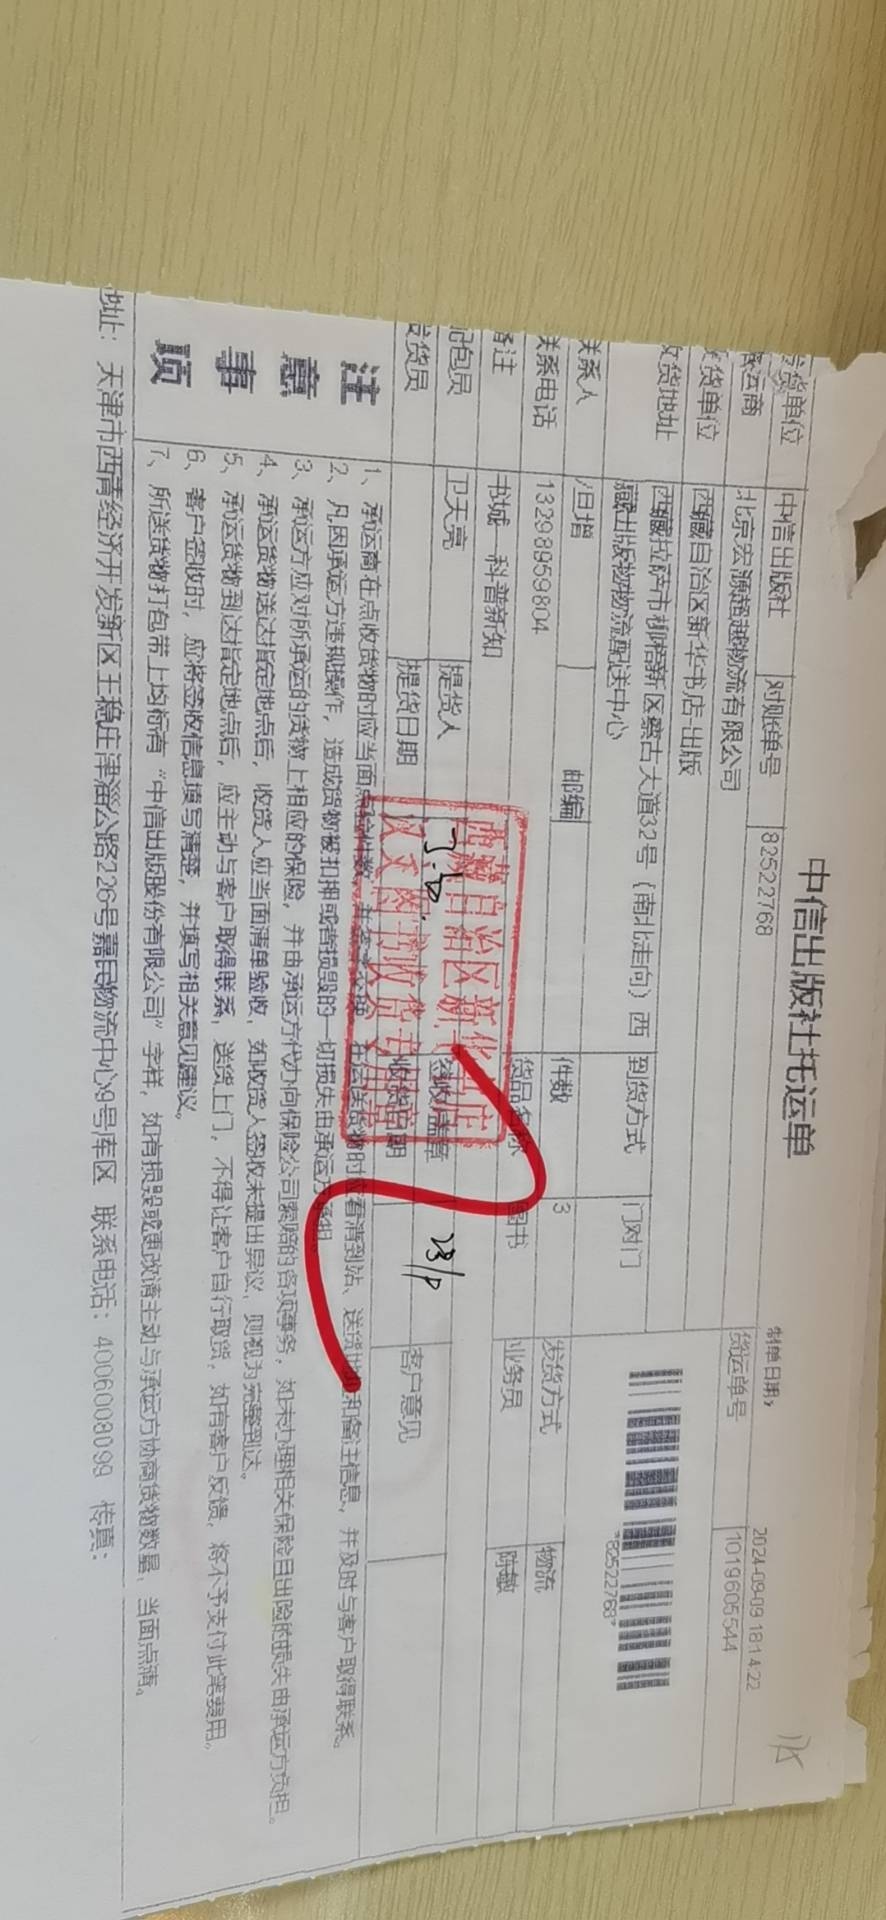 中信出版社托运单
制单日期: 2024-09-09 18:14:22
发货单位 中信出版社 对账单号 82522768 货运单号 1019605544
承运商 北京宏源超越物流有限公司
收货单位 西藏自治区新华书店出版
收货地址 西藏拉萨市柳梧新区蒙古大道32号（南北走向）西藏出版物物流配送中心 到货方式 门对门
*82522768*
联系人 旦增 邮编 件数 3 发货方式 物流
联系电话 13298959804 货品名称 图书 业务员 陈敏
备注 书城--科普新知
记包员 卫天亮 提货人 签收/盖章 客户意见
发货员 提货日期 收货日期
西藏自治区新华书店
汉文图书收货专用章
注意事项
1、承运商在点收货物时应当面点验件数，并签字交接，在运送货物时应看清到站、送货地址和备注信息，并及时与客户取得联系。
2、凡因承运方违规操作，造成货物被扣押或者损毁的一切损失由承运方承担。
3、承运方应对所承运的货物上相应的保险，并由承运方代办向保险公司索赔的各项事务，如未办理相关保险且出险的损失由承运方负担。
4、承运货物送达指定地点后，收货人应当面清单验收，如收货人签收未提出异议，则视为完整到达。
5、承运货物到达指定地点后，应主动与客户取得联系，送货上门，不得让客户自行取货，如有客户反馈，将不予支付此笔费用。
6、客户签收时，应将签收信息填写清楚，并填写相关意见建议。
7、所送货物打包带上均标有“中信出版股份有限公司”字样，如有损毁或更改请主动与承运方协商货物数量，当面点清。
地址：天津市西青经济开发新区王稳庄津淄公路226号嘉民物流中心9号库区 联系电话：4006008099 传真：